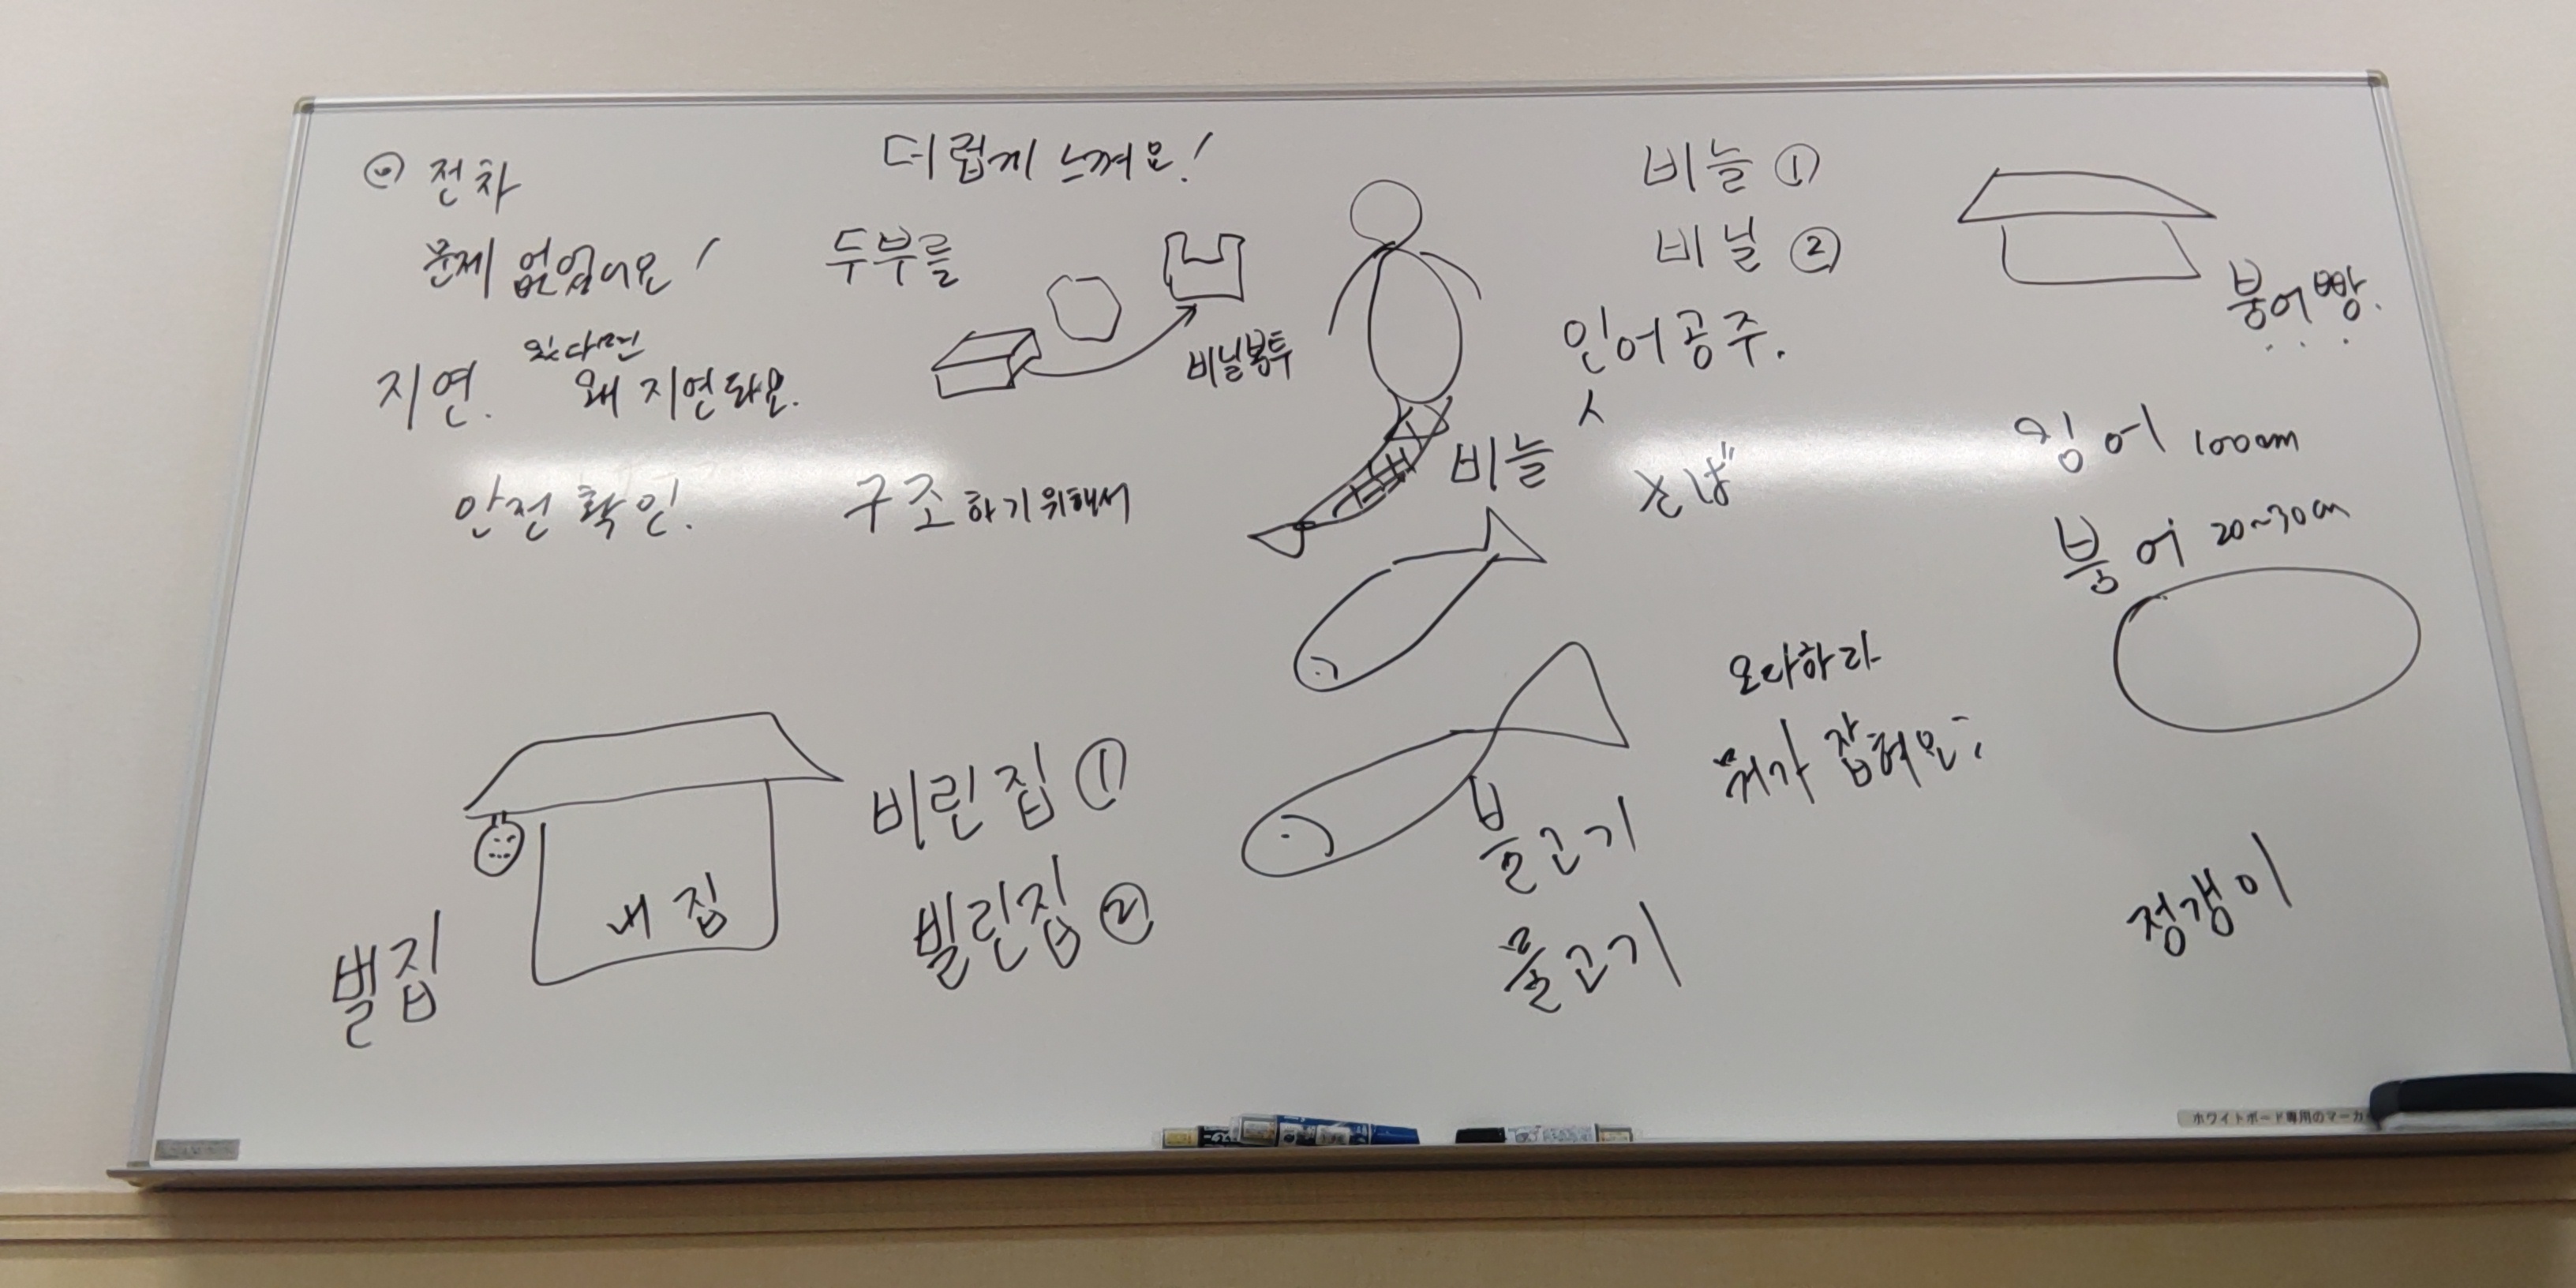 전차
문제 없었어요!
있다면
지연. 왜 지연돼요.
안전확인.
더럽게 느껴요!
두부를
비닐봉투
구조하기위해서
비늘 ①
비닐 ②
인어공주.
ㅅ
비늘
そば
붕어빵.
잉어 100cm
붕어 20~30cm
오다하라
뭐가 잡혀요?
정갱이
벌집
내 집
비린집 ①
빌린집 ②
ㅂ
불고기
물고기
ホワイトボード専用のマーカ